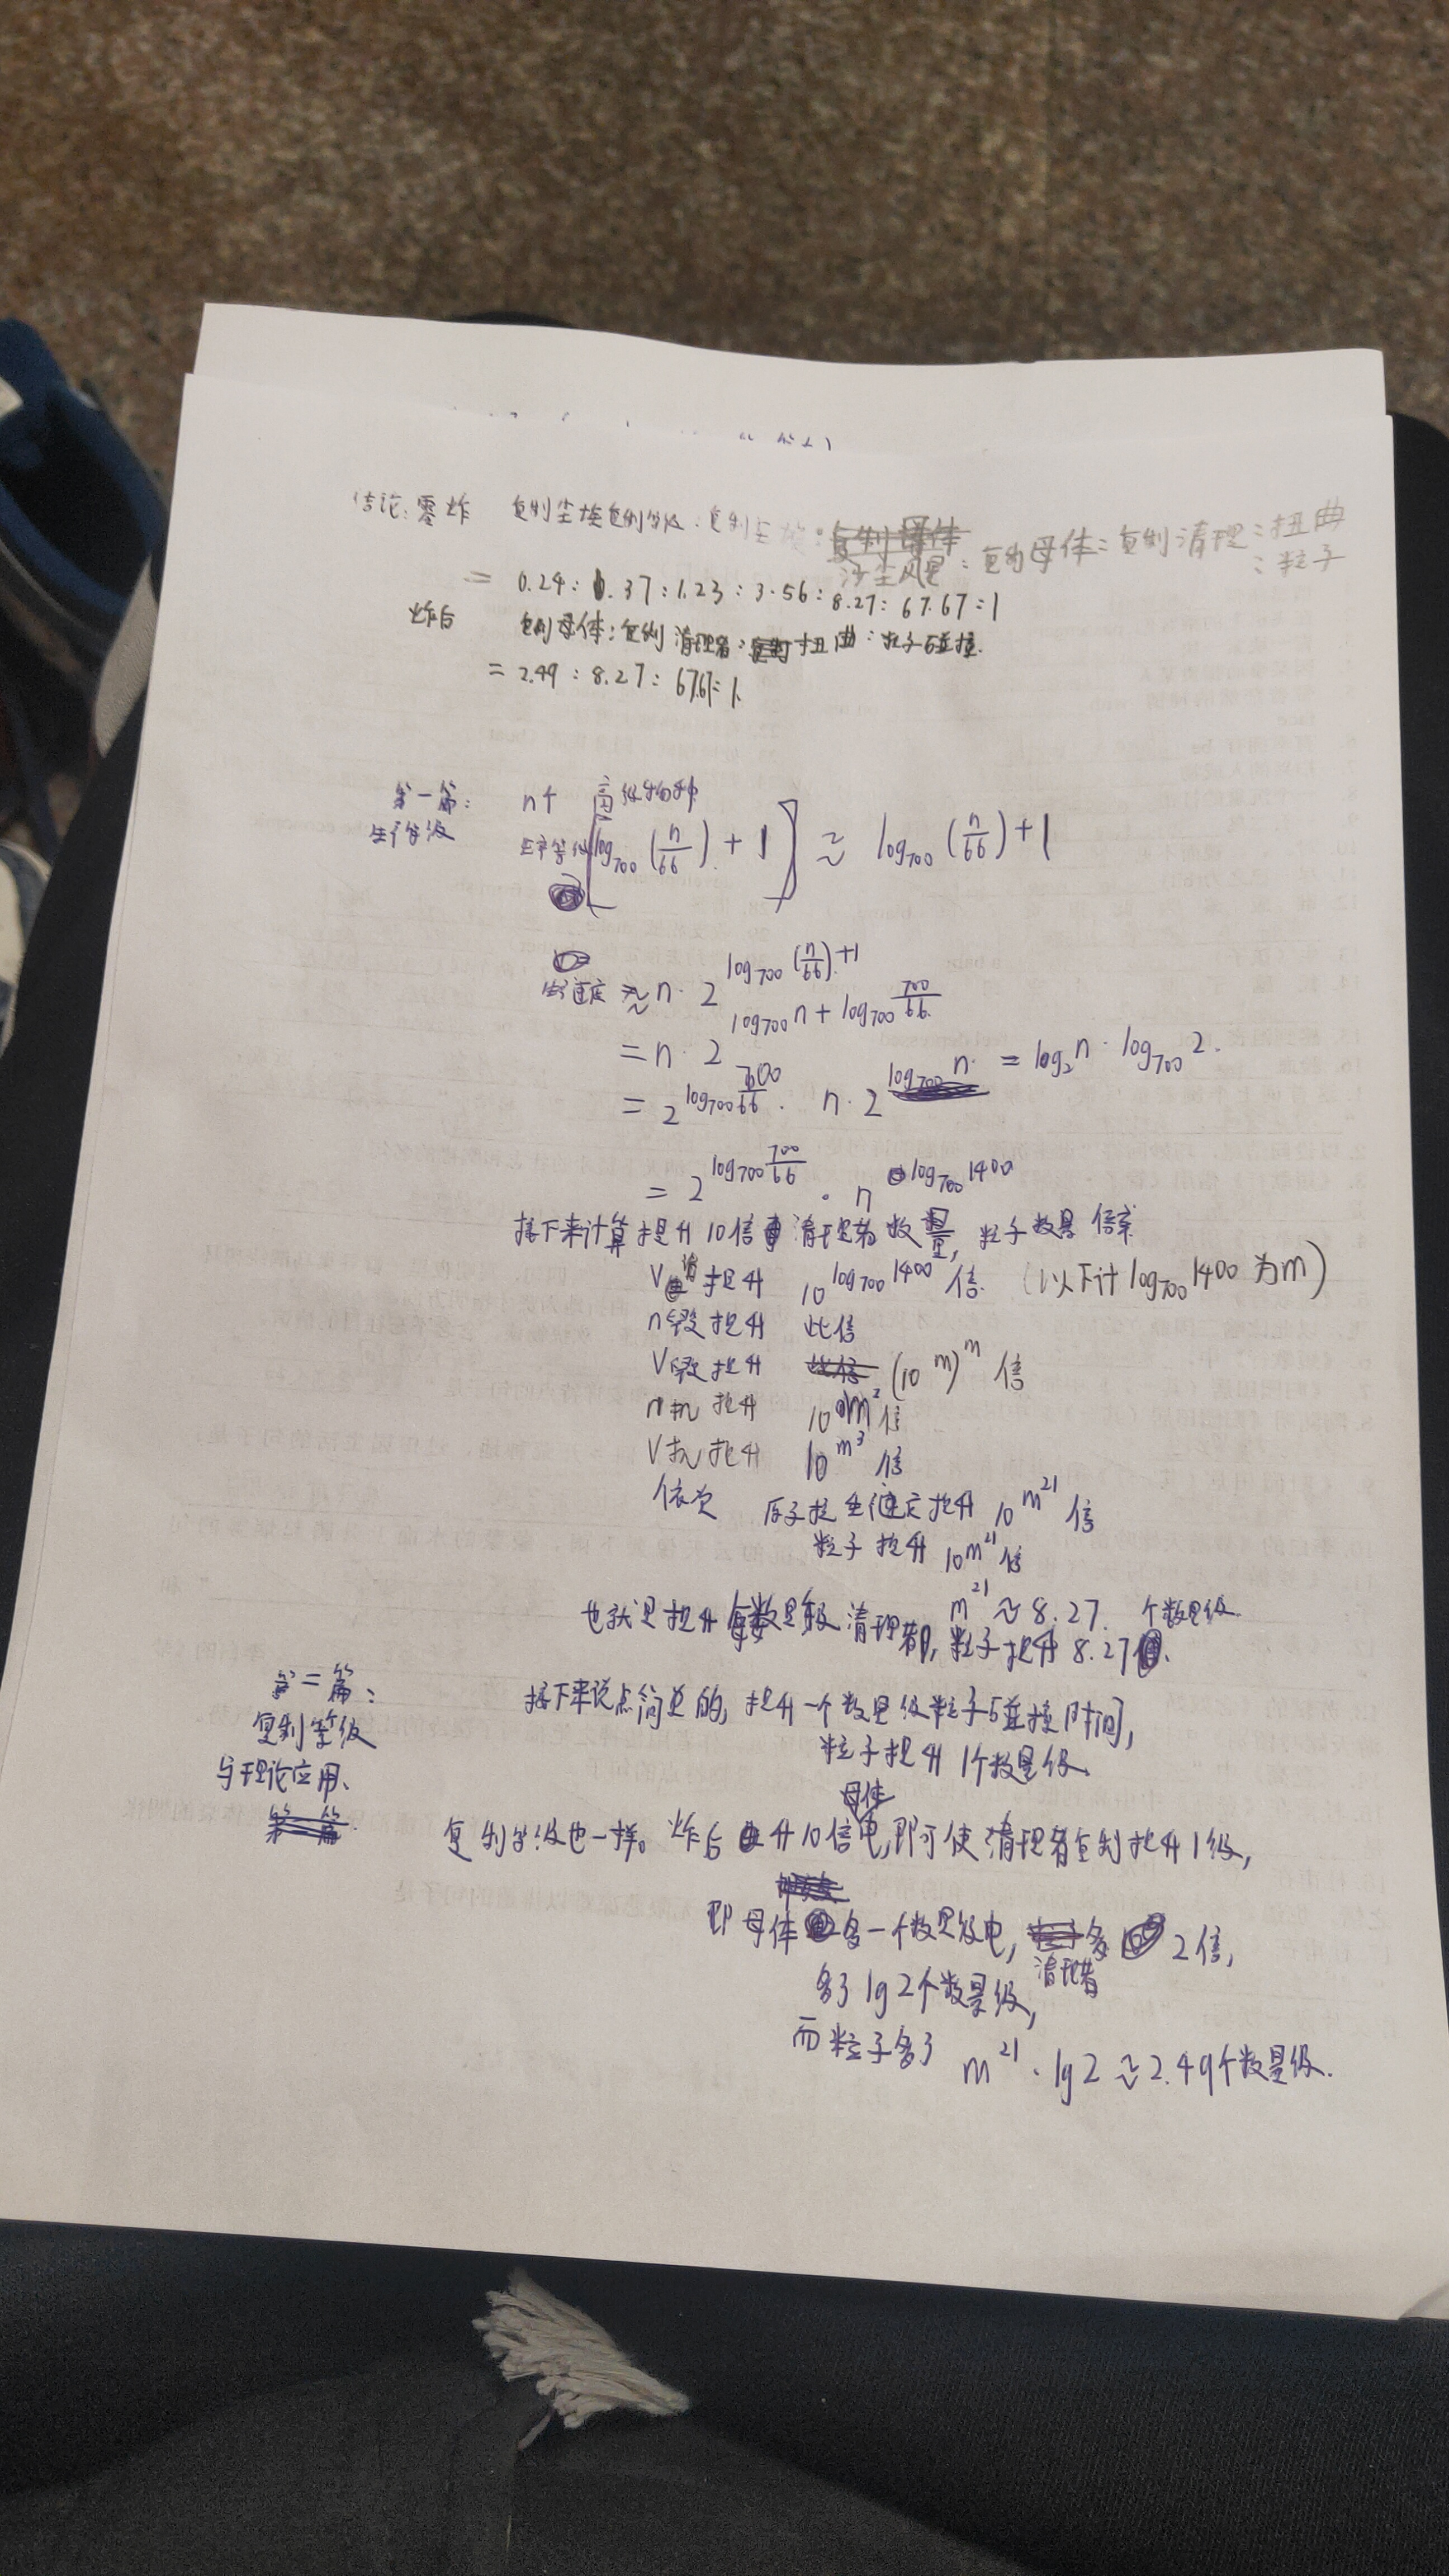 结论：零炸 复制尘埃复制等级：复制尘埃：沙尘风暴：复制母体：复制清理：扭曲：粒子
= 0.24 : 0.37 : 1.23 : 3.56 : 8.27 : 67.67 = 1
炸后 复制母体：复制清理者：扭曲：粒子碰撞
= 2.49 : 8.27 : 67.67 = 1.
第一篇： n个 高级物种
生产等级 生产等级[log₇₀₀(n/66) + 1] ≈ log₇₀₀(n/66) + 1
生产速度 ≈ n · 2^(log₇₀₀(n/66)+1)
= n · 2^(log₇₀₀n + log₇₀₀ 700/66)
= 2^(log₇₀₀ 700/66) · n · 2^(log₇₀₀ n) = log₂n · log₇₀₀2.
= 2^(log₇₀₀ 700/66) · n^(log₇₀₀1400)
接下来计算提升10倍清理者数量，粒子数量倍率
V清 提升 10^(log₇₀₀1400) 倍. （以下计log₇₀₀1400为m）
n毁提升 此倍
V毁提升 (10^m)^m 倍
n扰提升 10^m² 倍
V扰提升 10^m³ 倍
依次 提升 10^m²¹ 倍
粒子提升 10^m²¹ 倍
m²¹ ≈ 8.27. 个数量级
也就是提升每数量级清理者，粒子提升8.27.
第二篇：
复制等级
与理论应用、
接下来说点简单的，提升一个数量级粒子碰撞时间，
粒子提升1个数量级、
复制等级也一样。炸后升10倍母体电，即可使清理者复制提升1级，
即母体多一个数量级电，清理者多2倍，
多了lg2个数量级，
而粒子多了 m²¹ · lg2 ≈ 2.49个数量级.